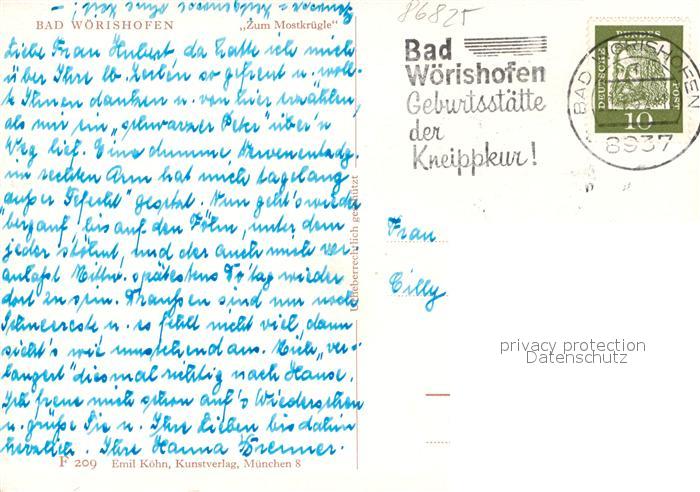 86825
BAD WÖRISHOFEN „Zum Mostkrügle“
Liebe Frau Hubert da hatte ich mich
über Ihre lb. Zeilen so gefreut u. woll-
te Ihnen danken u. von hier erzählen,
als mir ein „schwarzer Peter“ über'n
Weg lief. Eine dumme Nervenentzdg.
im rechten Arm hat mich tagelang
„außer Gefecht“ gesetzt. Nun geht's wieder
bergauf bis auf den Föhn, unter dem
jeder stöhnt, und der auch mich ver-
anlaßt Mittw. spätestens Do'tag wieder
dort zu sein. Draussen sind nur noch
Schneereste u. es fehlt nicht viel, dann
sieht's wie aus. Mich „ver-
langert“ diesmal richtig nach Hause.
Ich freue mich schon auf's Wiedersehen
u. grüße Sie u. Ihre Lieben bis dahin
herzlich. Ihre Hanna
F 209 Emil Köhn, Kunstverlag, München 8
Urheberrechtlich geschützt
Bad
Wörishofen
Geburtsstätte
der
Kneippkur!
BAD WÖRISHOFEN
8937
DEUTSCHE BUNDESPOST
10
Frau
Cilly
privacy protection
Datenschutz